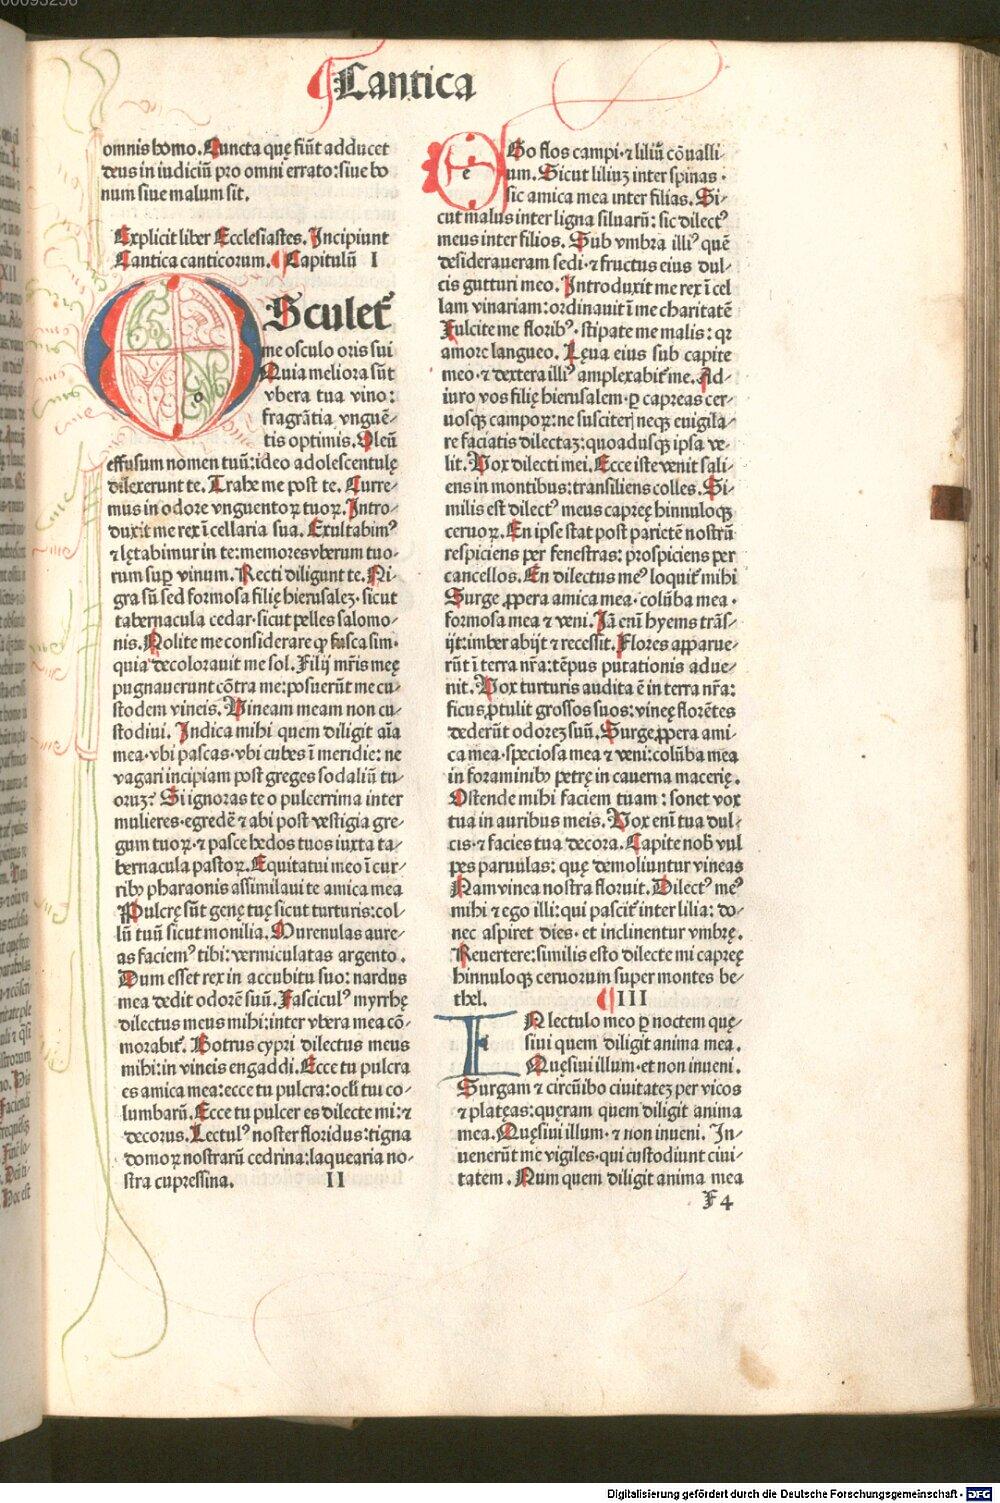 00093256
Cantica
omnis homo. Cuncta quę fiūt adducet
deus in iudiciū pro omni errato: siue bo
num siue malum sit.
Explicit liber Ecclesiastes. Incipiunt
Cantica canticorum. ¶ Capitulū I
OSculet᷑
me osculo oris sui
Quia meliora sūt
vbera tua vino:
fragrātia vnguē⸗
tis optimis. Oleū
effusum nomen tuū: ideo adolescentulę
dilexerunt te. Trahe me post te. Curre⸗
mus in odore vnguentoꝝ tuoꝝ. Intro⸗
duxit me rex ī cellaria sua. Exultabimꝰ
⁊ lętabimur in te: memores vberum tuo⸗
rum suꝑ vinum. Recti diligunt te. Ni⸗
gra sū sed formosa filię hierusalez· sicut
tabernacula cedar· sicut pelles salomo⸗
nis. Nolite me considerare ꝙ fusca sim·
quia decolorauit me sol. Filij mr̄is meę
pugnauerunt cōtra me: posuerūt me cu⸗
stodem vineis. Vineam meam non cu⸗
stodiui. Indica mihi quem diligit aīa
mea· vbi pascas· vbi cubes ī meridie: ne
vagari incipiam post greges sodaliū tu⸗
oruz? Si ignoras te o pulcerrima inter
mulieres· egredē ⁊ abi post vestigia gre⸗
gum tuoꝝ· ⁊ pasce hedos tuos iuxta ta⸗
bernacula pastoꝝ. Equitatui meo ī cur⸗
ribꝫ pharaonis assimilaui te amica mea
Pulcrę sūt genę tuę sicut turturis: col⸗
lū tuū sicut monilia. Murenulas aure⸗
as faciemꝰ tibi: vermiculatas argento.
Dum esset rex in accubitu suo: nardus
mea dedit odorē suū. Fasciculꝰ myrrhę
dilectus meus mihi: inter vbera mea cō⸗
morabit᷑. Botrus cypri dilectus meus
mihi: in vineis engaddi. Ecce tu pulcra
es amica mea: ecce tu pulcra: ocĺi tui co⸗
lumbarū. Ecce tu pulcer es dilecte mi: ⁊
decorus. Lectulꝰ noster floridus: tigna
domoꝝ nostrarū cedrina: laquearia no⸗
stra cupressina. II
EGo flos campi· ⁊ liliū cōualli⸗
um. Sicut liliuz inter spinas·
sic amica mea inter filias. Si⸗
cut malus inter ligna siluarū: sic dilectꝰ
meus inter filios. Sub vmbra illiꝰ quē
desideraueram sedi· ⁊ fructus eius dul⸗
cis gutturi meo. Introduxit me rex ī cel
lam vinariam: ordinauit ī me charitatē
Fulcite me floribꝰ· stipate me malis: qr
amore langueo. Lęua eius sub capite
meo· ⁊ dextera illiꝰ amplexabit᷑ me. Ad⸗
iuro vos filię hierusalem· ꝑ capreas cer⸗
uosqꝫ campoꝝ: ne suscitetꝭ neqꝫ euigila⸗
re faciatis dilectaz: quoadusqꝫ ipsa ve⸗
lit. Vox dilecti mei. Ecce iste venit sali⸗
ens in montibus: transiliens colles. Si⸗
milis est dilectꝰ meus capreę hinnuloqꝫ
ceruoꝝ. En ipse stat post parietē nostrū
respiciens per fenestras: prospiciens per
cancellos. En dilectus meꝰ loquit᷑ mihi
Surge ꝓpera amica mea· colūba mea·
formosa mea ⁊ veni. Iā enī hyems trās⸗
ijt: imber abijt ⁊ recessit. Flores apparue⸗
rūt ī terra nr̄a: tēpus putationis adue⸗
nit. Vox turturis audita ē in terra nr̄a:
ficus ꝓtulit grossos suos: vineę florētes
dederūt odorez suū. Surge ꝓpera ami⸗
ca mea· speciosa mea ⁊ veni: colūba mea
in foraminibꝫ petrę in cauerna macerię.
Ostende mihi faciem tuam: sonet vox
tua in auribus meis. Vox enī tua dul⸗
cis· ⁊ facies tua decora. Capite nob̄ vul
pes paruulas: quę demoliuntur vineas
Nam vinea nostra floruit. Dilectꝰ meꝰ
mihi ⁊ ego illi: qui pascit᷑ inter lilia: do⸗
nec aspiret dies· et inclinentur vmbrę.
Reuertere: similis esto dilecte mi capreę
hinnuloqꝫ ceruorum super montes be⸗
thel. ¶ III
IN lectulo meo ꝑ noctem quę⸗
siui quem diligit anima mea.
Quęsiui illum· et non inueni.
Surgam ⁊ circūibo ciuitatez per vicos
⁊ plateas: quęram quem diligit anima
mea. Quęsiui illum· ⁊ non inueni. In⸗
uenerūt me vigiles· qui custodiunt ciui⸗
tatem. Num quem diligit anima mea
F4
Digitalisierung gefördert durch die Deutsche Forschungsgemeinschaft - DFG